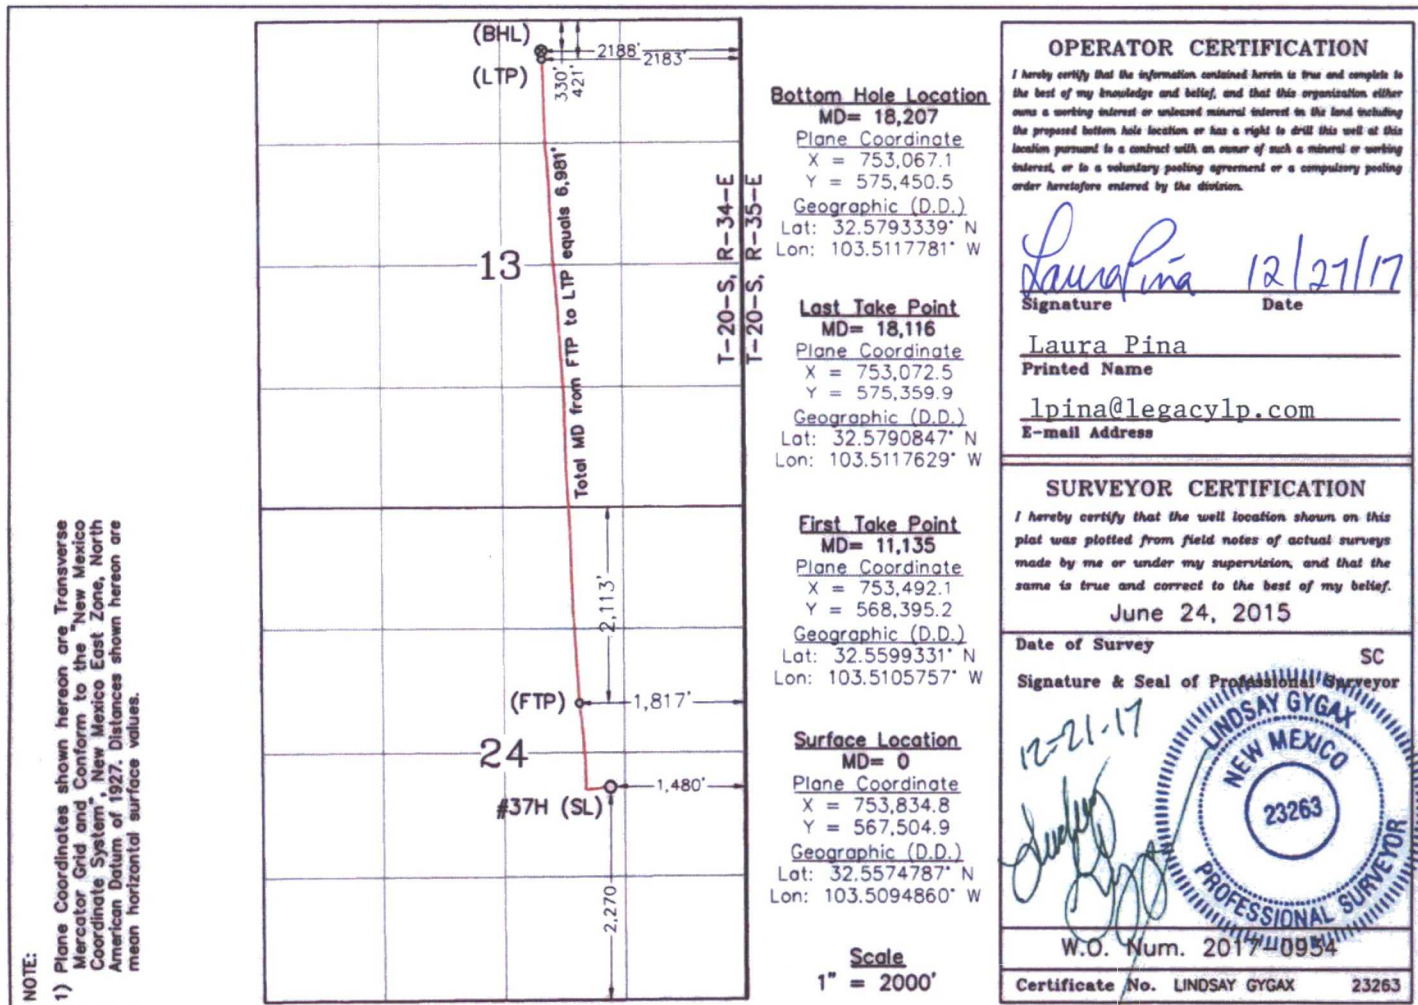 NOTE:
1) Plane Coordinates shown hereon are Transverse
Mercator Grid and Conform to the "New Mexico
Coordinate System", New Mexico East Zone, North
American Datum of 1927. Distances shown hereon are
mean horizontal surface values.
(BHL)
2188'
2183'
(LTP)
330'
421'
Total MD from FTP to LTP equals 6,981'
13
T-20-S, R-34-E
T-20-S, R-35-E
2,113'
(FTP)
1,817'
24
1,480'
#37H (SL)
2,270
Bottom Hole Location
MD= 18,207
Plane Coordinate
X = 753,067.1
Y = 575,450.5
Geographic (D.D.)
Lat: 32.5793339° N
Lon: 103.5117781° W
Last Take Point
MD= 18,116
Plane Coordinate
X = 753,072.5
Y = 575,359.9
Geographic (D.D.)
Lat: 32.5790847° N
Lon: 103.5117629° W
First Take Point
MD= 11,135
Plane Coordinate
X = 753,492.1
Y = 568,395.2
Geographic (D.D.)
Lat: 32.5599331° N
Lon: 103.5105757° W
Surface Location
MD= 0
Plane Coordinate
X = 753,834.8
Y = 567,504.9
Geographic (D.D.)
Lat: 32.5574787° N
Lon: 103.5094860° W
Scale
1" = 2000'
OPERATOR CERTIFICATION
I hereby certify that the information contained herein is true and complete to
the best of my knowledge and belief, and that this organization either
owns a working interest or unleased mineral interest in the land including
the proposed bottom hole location or has a right to drill this well at this
location pursuant to a contract with an owner of such a mineral or working
interest, or to a voluntary pooling agreement or a compulsory pooling
order heretofore entered by the division.
Laura Pina 12/27/17
Signature Date
Laura Pina
Printed Name
lpina@legacylp.com
E-mail Address
SURVEYOR CERTIFICATION
I hereby certify that the well location shown on this
plat was plotted from field notes of actual surveys
made by me or under my supervision, and that the
same is true and correct to the best of my belief.
June 24, 2015
Date of Survey
SC
Signature & Seal of Professional Surveyor
12-21-17
LINDSAY GYGAX
NEW MEXICO
23263
PROFESSIONAL SURVEYOR
W.O. Num. 2017-0954
Certificate No. LINDSAY GYGAX 23263